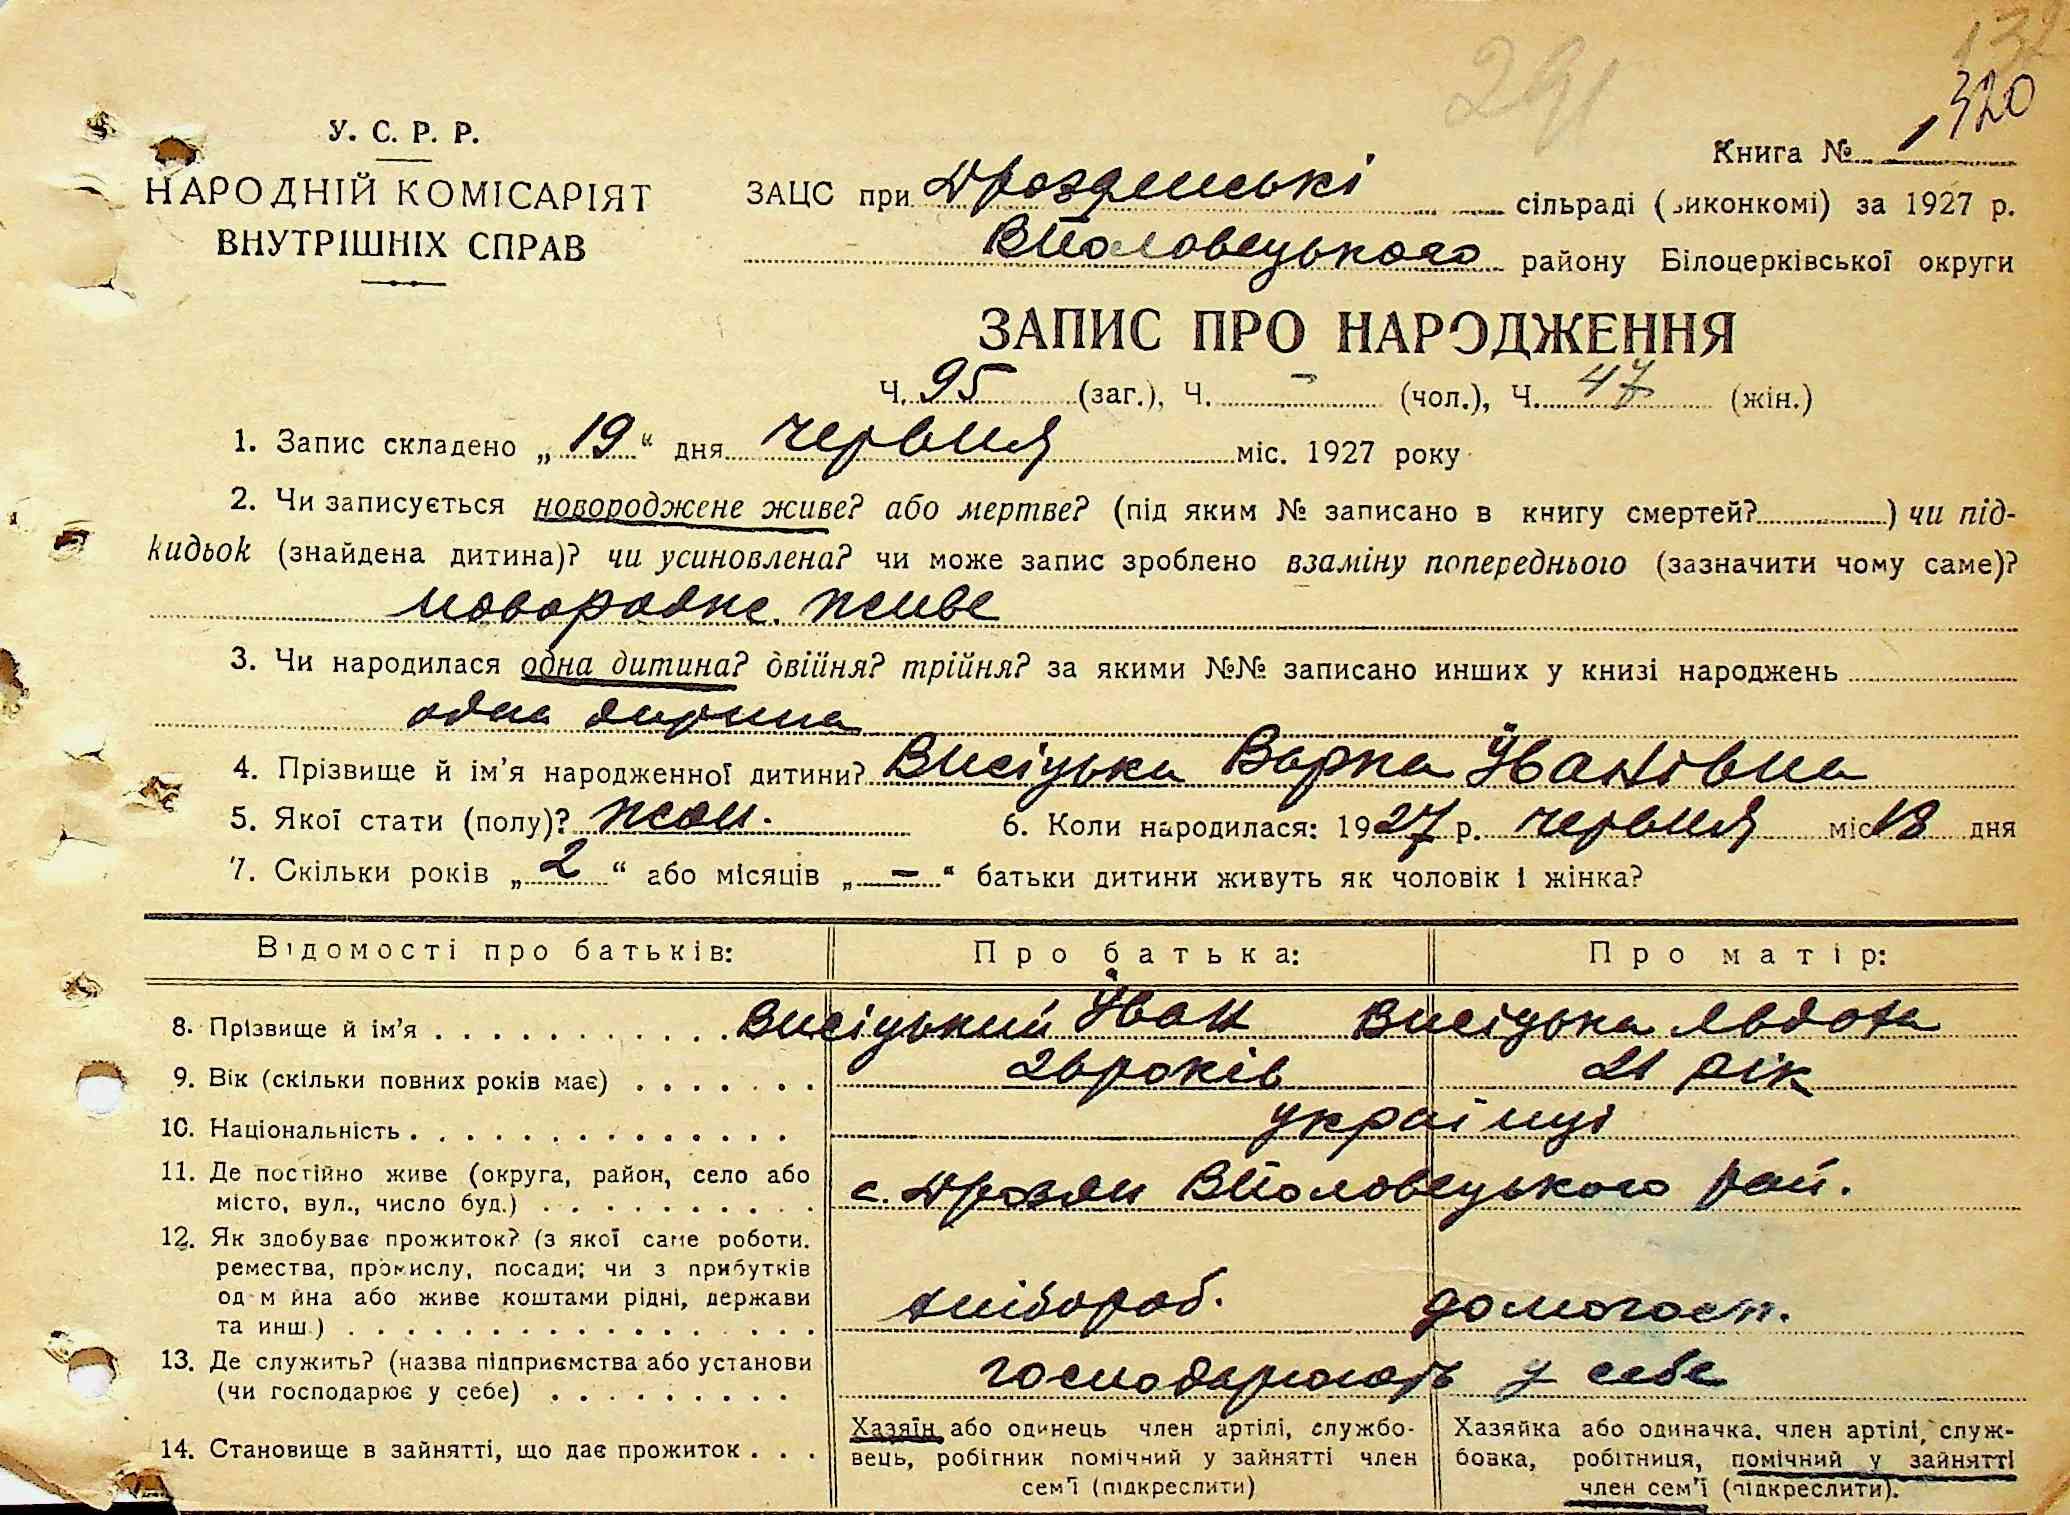 132
291
320
У. С. Р. Р.
НАРОДНІЙ КОМІСАРІЯТ
ВНУТРІШНІХ СПРАВ
Книга № 1
ЗАЦС при Дроздянські сільраді (виконкомі) за 1927 р.
ВПоловецького району Білоцерківської округи
ЗАПИС ПРО НАРОДЖЕННЯ
Ч. 95 (заг.), Ч. - (чол.), Ч. 47 (жін.)
1. Запис складено „19“ дня червня міс. 1927 року
2. Чи записується новороджене живе? або мертве? (під яким № записано в книгу смертей?) чи під-
кидьок (знайдена дитина)? чи усиновлена? чи може запис зроблено взаміну попереднього (зазначити чому саме)?
новородже. живе
3. Чи народилася одна дитина? двійня? трійня? за якими №№ записано инших у книзі народжень
одна дитина
4. Прізвище й ім'я народженної дитини? Висіцька Варка Йванівна
5. Якої стати (полу)? жон. 6. Коли народилася: 1927 р. червня міс 18 дня
7. Скільки років „2“ або місяців „-“ батьки дитини живуть як чоловік і жінка?
Відомості про батьків: Про батька: Про матір:
8. Прізвище й ім'я Висіцький Йван Висіцька Явдоха
9. Вік (скільки повних років має) 26 років 21 рік
10. Національність українці
11. Де постійно живе (округа, район, село або
місто, вул., число буд.) с. Дрозди ВПоловецького рай.
12. Як здобуває прожиток? (з якої саме роботи.
ремества, промислу, посади; чи з прибутків
од м йна або живе коштами рідні, держави
та инш.) хлібороб. домогосп.
13. Де служить? (назва підприємства або установи
(чи господарює у себе) господарюють у себе
14. Становище в зайнятті, що дає прожиток
Хазяїн або одинець член артілі, службо-
вець, робітник помічний у зайнятті член
сем'ї (підкреслити)
Хазяйка або одиначка, член артілі, служ-
бовка, робітниця, помічний у зайнятті
член сем'ї (підкреслити).